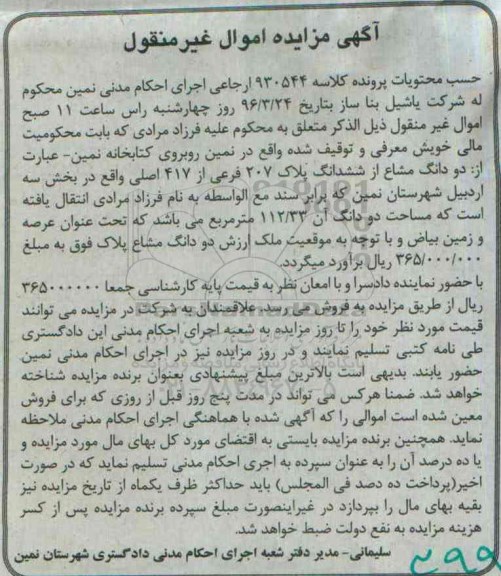 آگهی مزایده اموال غیرمنقول
حسب محتویات پرونده کلاسه ۹۳۰۵۴۴ ارجاعی اجرای احکام مدنی نمین محکوم
له شرکت یاشیل بنا ساز بتاریخ ۹۶/۳/۲۴ روز چهارشنبه راس ساعت ۱۱ صبح
اموال غیر منقول ذیل الذکر متعلق به محکوم علیه فرزاد مرادی که بابت محکومیت
مالی خویش معرفی و توقیف شده واقع در نمین روبروی کتابخانه نمین- عبارت
از: دو دانگ مشاع از ششدانگ پلاک ۲۰۷ فرعی از ۴۱۷ اصلی واقع در بخش سه
اردبیل شهرستان نمین که برابر سند مع الواسطه به نام فرزاد مرادی انتقال یافته
است که مساحت دو دانگ آن ۱۱۲/۳۳ مترمربع می باشد که تحت عنوان عرصه
و زمین بیاض و با توجه به موقعیت ملک ارزش دو دانگ مشاع پلاک فوق به مبلغ
۳۶۵/۰۰۰/۰۰۰ ریال برآورد میگردد.
با حضور نماینده دادسرا و با امعان نظر به قیمت پایه کارشناسی جمعا ۳۶۵۰۰۰۰۰۰
ریال از طریق مزایده به فروش می رسد. علاقمندان به شرکت در مزایده می توانند
قیمت مورد نظر خود را تا روز مزایده به شعبه اجرای احکام مدنی این دادگستری
طی نامه کتبی تسلیم نمایند و در روز مزایده نیز در اجرای احکام مدنی نمین
حضور یابند. بدیهی است بالاترین مبلغ پیشنهادی بعنوان برنده مزایده شناخته
خواهد شد. ضمنا هرکس می تواند در مدت پنج روز قبل از روزی که برای فروش
معین شده است اموالی را که آگهی شده با هماهنگی اجرای احکام مدنی ملاحظه
نماید. همچنین برنده مزایده بایستی به اقتضای مورد کل بهای مال مورد مزایده و
یا ده درصد آن را به عنوان سپرده به اجری احکام مدنی تسلیم نماید که در صورت
اخیر(پرداخت ده دصد فی المجلس) باید حداکثر ظرف یکماه از تاریخ مزایده نیز
بقیه بهای مال را بپردازد در غیراینصورت مبلغ سپرده برنده مزایده پس از کسر
هزینه مزایده به نفع دولت ضبط خواهد شد.
سلیمانی- مدیر دفتر شعبه اجرای احکام مدنی دادگستری شهرستان نمین
۲۹۹